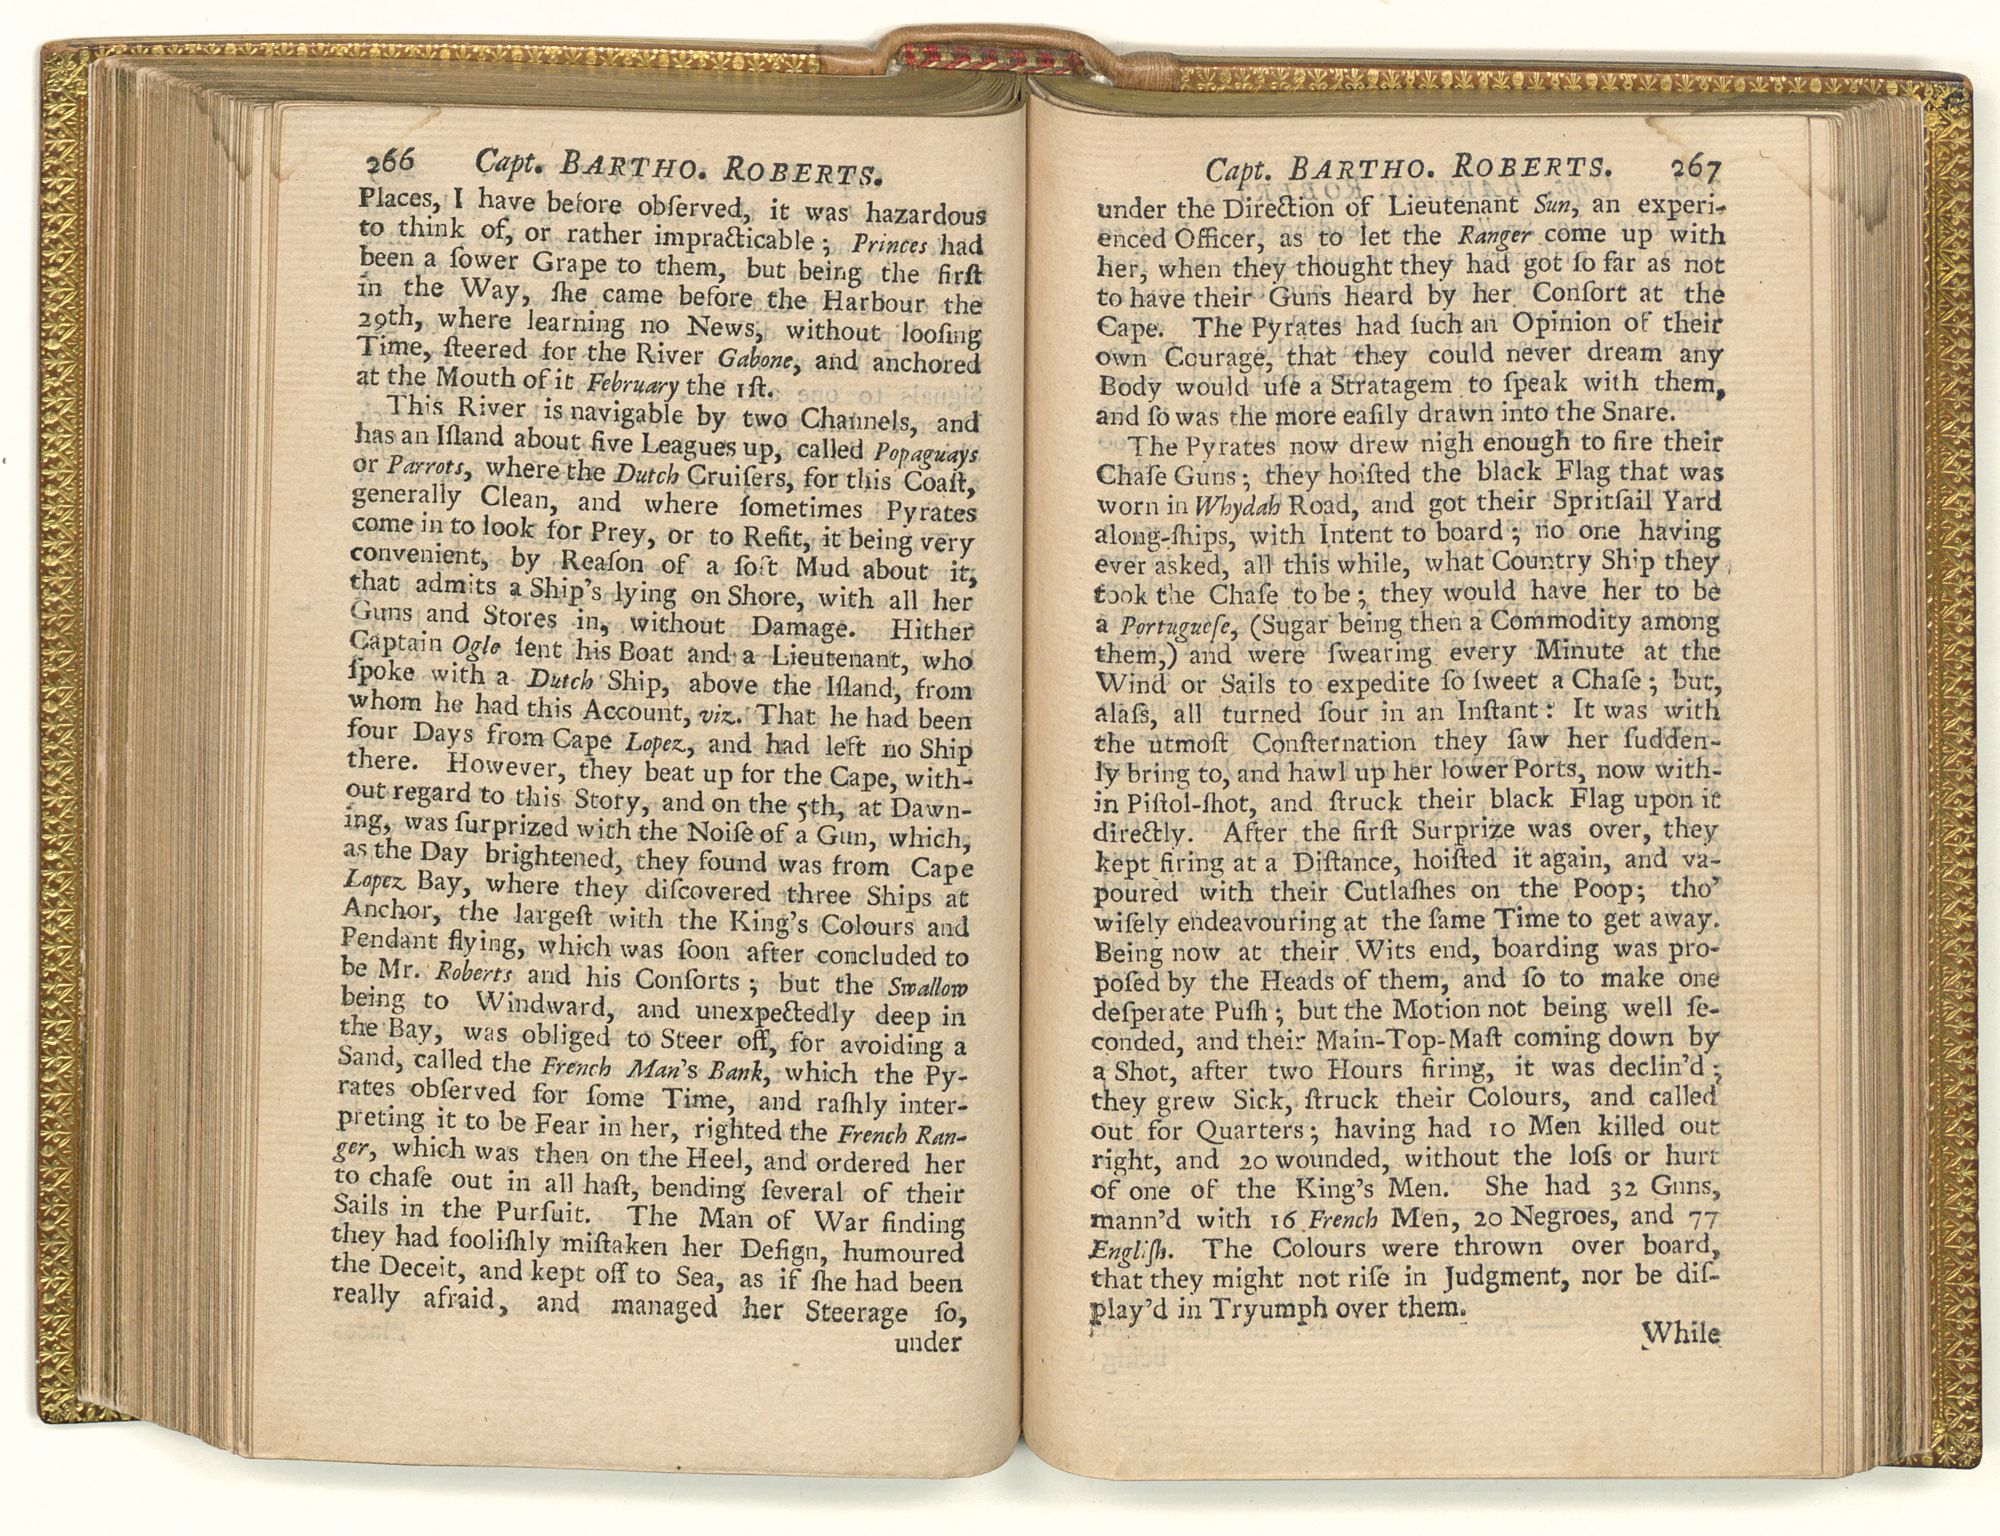 266 Capt. BARTHO. ROBERTS.
Places, I have before obſerved, it was hazardous
to think of, or rather impracticable; Princes had
been a ſower Grape to them, but being the firſt
in the Way, ſhe came before the Harbour the
29th, where learning no News, without looſing
Time, ſteered for the River Gabone, and anchored
at the Mouth of it February the 1ſt.
This River is navigable by two Channels, and
has an Iſland about five Leagues up, called Popaguays
or Parrots, where the Dutch Cruiſers, for this Coaſt,
generally Clean, and where ſometimes Pyrates
come in to look for Prey, or to Refit, it being very
convenient, by Reaſon of a ſoft Mud about it,
that admits a Ship's lying on Shore, with all her
Guns and Stores in, without Damage. Hither
Captain Ogle ſent his Boat and a Lieutenant, who
ſpoke with a Dutch Ship, above the Iſland, from
whom he had this Account, viz. That he had been
four Days from Cape Lopez, and had left no Ship
there. However, they beat up for the Cape, with-
out regard to this Story, and on the 5th, at Dawn-
ing, was ſurprized with the Noiſe of a Gun, which,
as the Day brightened, they found was from Cape
Lopez Bay, where they diſcovered three Ships at
Anchor, the largeſt with the King's Colours and
Pendant flying, which was ſoon after concluded to
be Mr. Roberts and his Conſorts; but the Swallow
being to Windward, and unexpectedly deep in
the Bay, was obliged to Steer off, for avoiding a
Sand, called the French Man's Bank, which the Py-
rates obſerved for ſome Time, and raſhly inter-
preting it to be Fear in her, righted the French Ran-
ger, which was then on the Heel, and ordered her
to chaſe out in all haſt, bending ſeveral of their
Sails in the Purſuit. The Man of War finding
they had fooliſhly miſtaken her Deſign, humoured
the Deceit, and kept off to Sea, as if ſhe had been
really afraid, and managed her Steerage ſo,
under
Capt. BARTHO. ROBERTS. 267
under the Direction of Lieutenant Sun, an experi-
enced Officer, as to let the Ranger come up with
her, when they thought they had got ſo far as not
to have their Guns heard by her Conſort at the
Cape. The Pyrates had ſuch an Opinion of their
own Courage, that they could never dream any
Body would uſe a Stratagem to ſpeak with them,
and ſo was the more eaſily drawn into the Snare.
The Pyrates now drew nigh enough to fire their
Chaſe Guns; they hoiſted the black Flag that was
worn in Whydah Road, and got their Spritſail Yard
along-ſhips, with Intent to board; no one having
ever asked, all this while, what Country Ship they
took the Chaſe to be; they would have her to be
a Portugueſe, (Sugar being then a Commodity among
them,) and were ſwearing every Minute at the
Wind or Sails to expedite ſo ſweet a Chaſe; but,
alaſs, all turned ſour in an Inſtant: It was with
the utmoſt Conſternation they ſaw her ſudden-
ly bring to, and hawl up her lower Ports, now with-
in Piſtol-ſhot, and ſtruck their black Flag upon it
directly. After the firſt Surprize was over, they
kept firing at a Diſtance, hoiſted it again, and va-
poured with their Cutlaſhes on the Poop; tho'
wiſely endeavouring at the ſame Time to get away.
Being now at their Wits end, boarding was pro-
poſed by the Heads of them, and ſo to make one
deſperate Puſh; but the Motion not being well ſe-
conded, and their Main-Top-Maſt coming down by
a Shot, after two Hours firing, it was declin'd;
they grew Sick, ſtruck their Colours, and called
out for Quarters; having had 10 Men killed out
right, and 20 wounded, without the loſs or hurt
of one of the King's Men. She had 32 Guns,
mann'd with 16 French Men, 20 Negroes, and 77
Engliſh. The Colours were thrown over board,
that they might not riſe in Judgment, nor be diſ-
play'd in Tryumph over them.
While